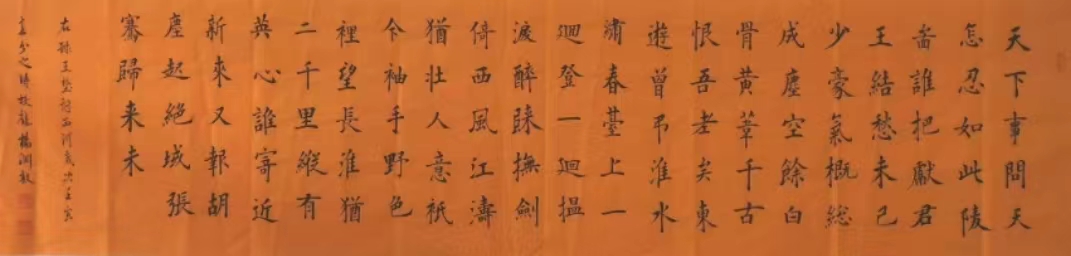 天下事問天
怎忍如此陵
啚誰把獻君
王結愁未已
少豪氣概総
成塵空餘白
骨黃葦千古
恨吾老矣東
遊曾弔淮水
繡春臺上一
迴登一迴揾
淚醉歸撫劍
倚西風江濤
猶壯人意祇
今袖手野色
裡望長淮猶
二千里縱有
英心誰寄近
新來又報胡
塵起絕域張
騫歸来未
右錄王埜詞西河歲次壬寅
之時於龍